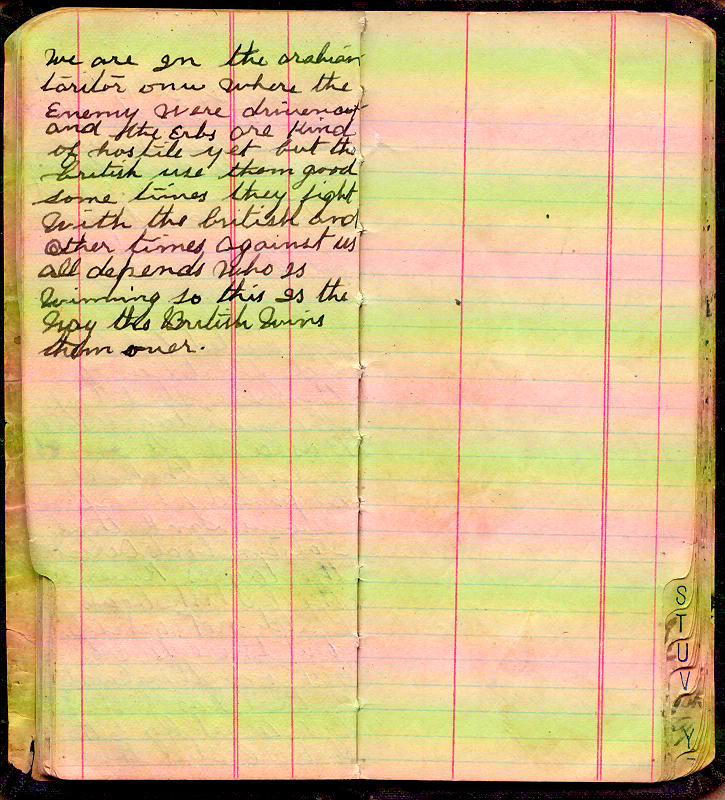 We are in the arabian
taritor onu where the
Enemy were driven out
and the Erbs are kind
of hostile yet but the
british use them good
some times they fight
With the british and
other times against us
all depends who is
winning so this is the
Way the British Wins
them over.
S
T
U
V
Y